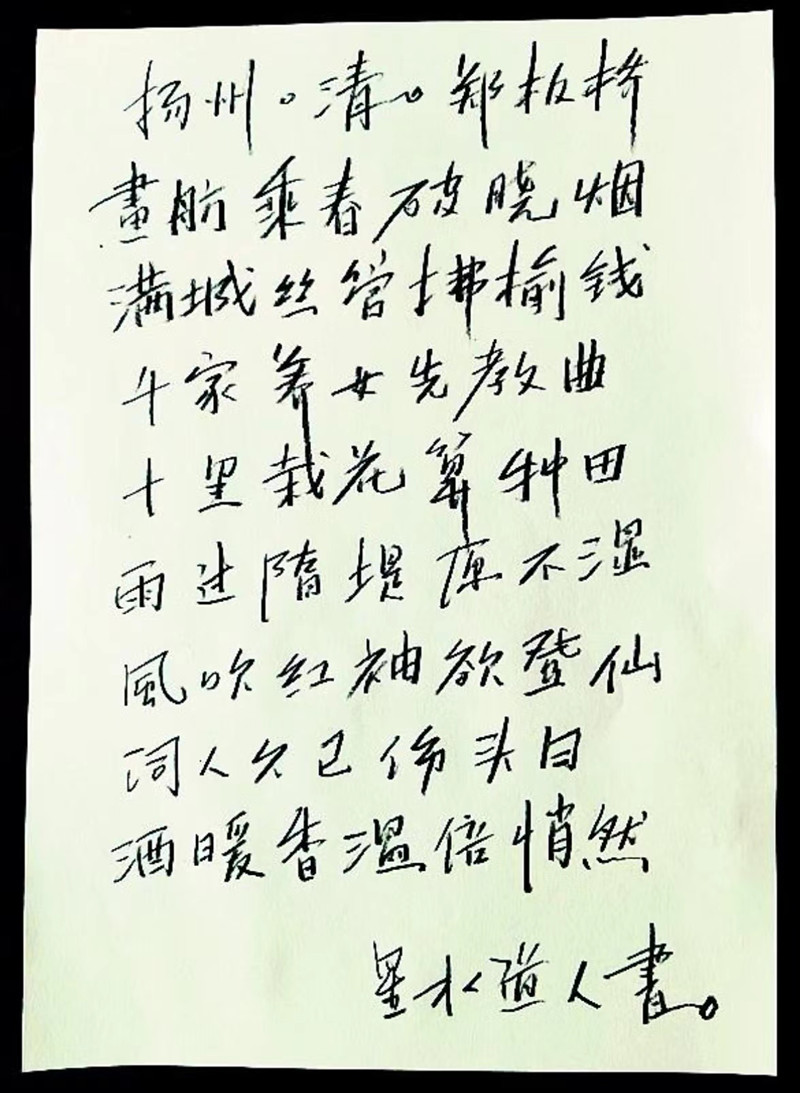 扬州。清。郑板桥
畫舫乘春破晓烟
满城丝管拂榆钱
千家养女先教曲
十里栽花算种田
雨过隋堤原不湿
風吹红袖欲登仙
词人久已伤头白
酒暖香温倍悄然
星水道人書。